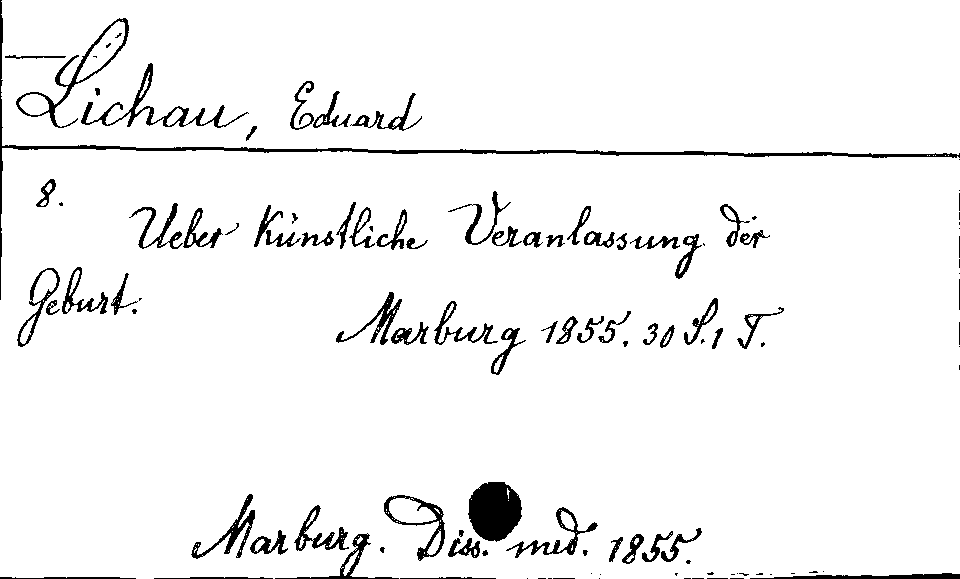 Lichau, Eduard
8.
Ueber künstliche Veranlassung der
Geburt.
Marburg 1855. 30 S. 1 T.
Marburg. Diss. med. 1855.